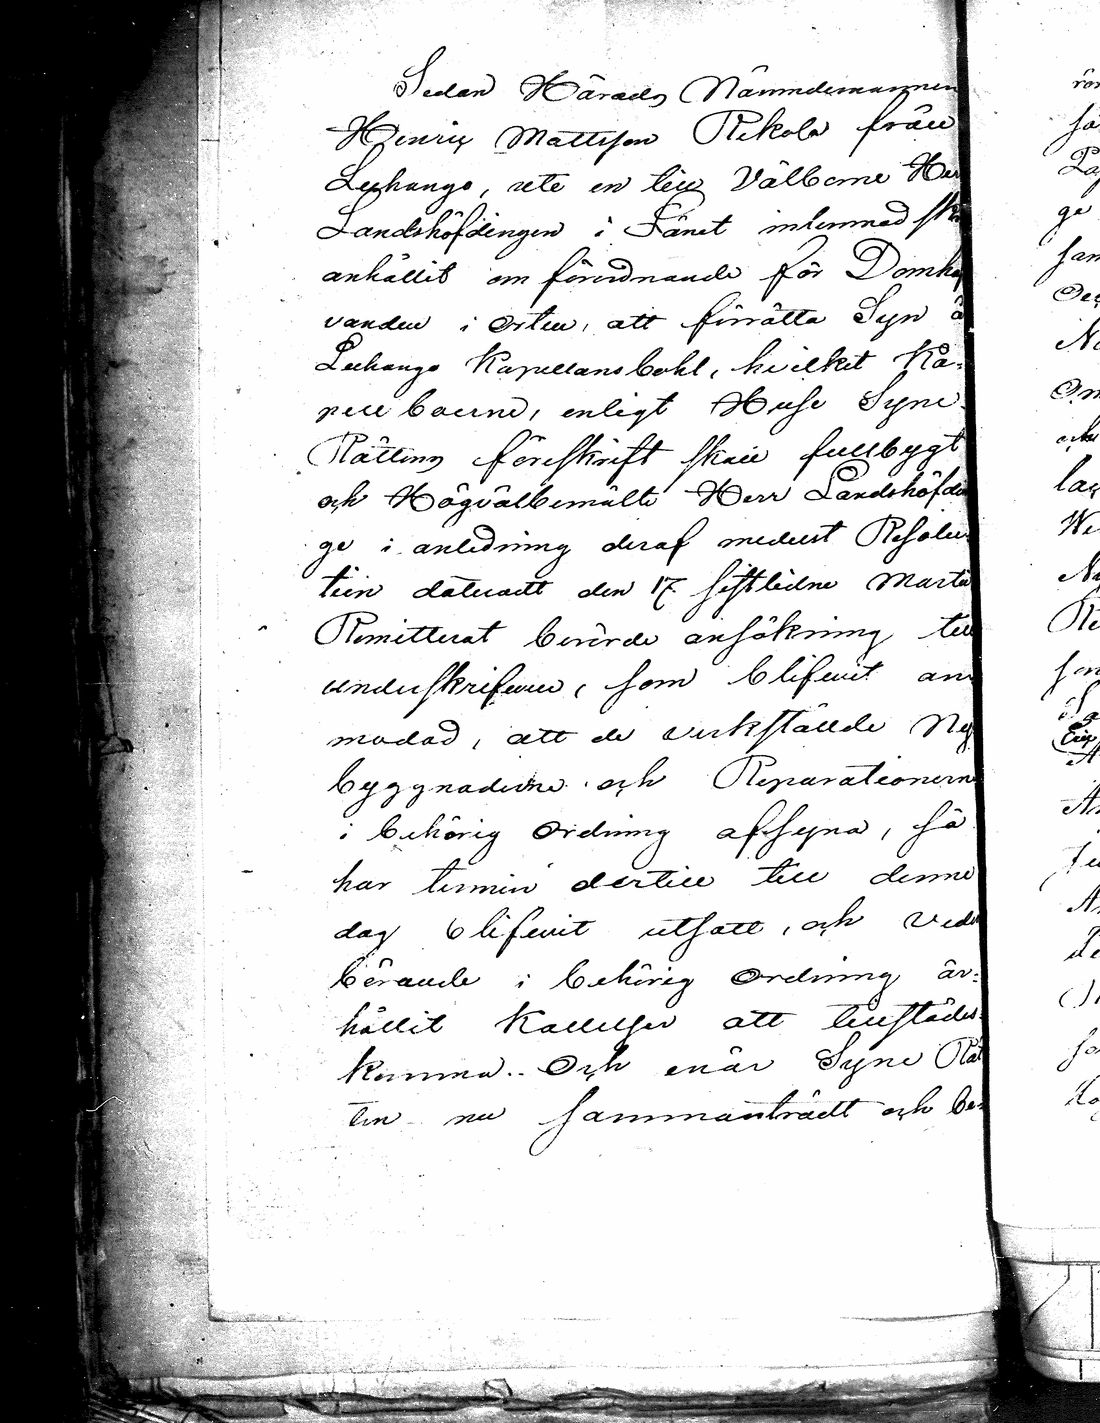 Sedan Härads Nämndemannen
Henric Mattsson Rekola från
Lechango, uti en till Välborne Her
Landshöfdingen i Länet inlemnad skr
anhållit om förordnande för Domhaf
vanden i orten, att förrätta Syn å
Lechango Kapellansbohl, hvilket Ka-
pellboerne, enligt Huse Syne
Rättens föreskrift skall fullbygt
och Högvälbemälte Herr Landshöfdin
ge i anledning deraf medelst Resolu
tion dateradt den 17 sistledne Martii
Remitterat berörde ansökning till
underskrifven, som blifvit an
modad, att de verkstälde Ny
byggnaderne och Reparationerne
i behörig ordning afsyna, så
har termin dertill till denne
dag blifvit utsatt, och veder
börande i behörig ordning är-
hållit Kallelser att tillstädes
komma.. Och enär Syne Rät
ten nu sammanträdt och be-
rör
sa
ge
sam
Oc
N
Om
och
lag
We
Ny
Re
som
A
An
An
De
so